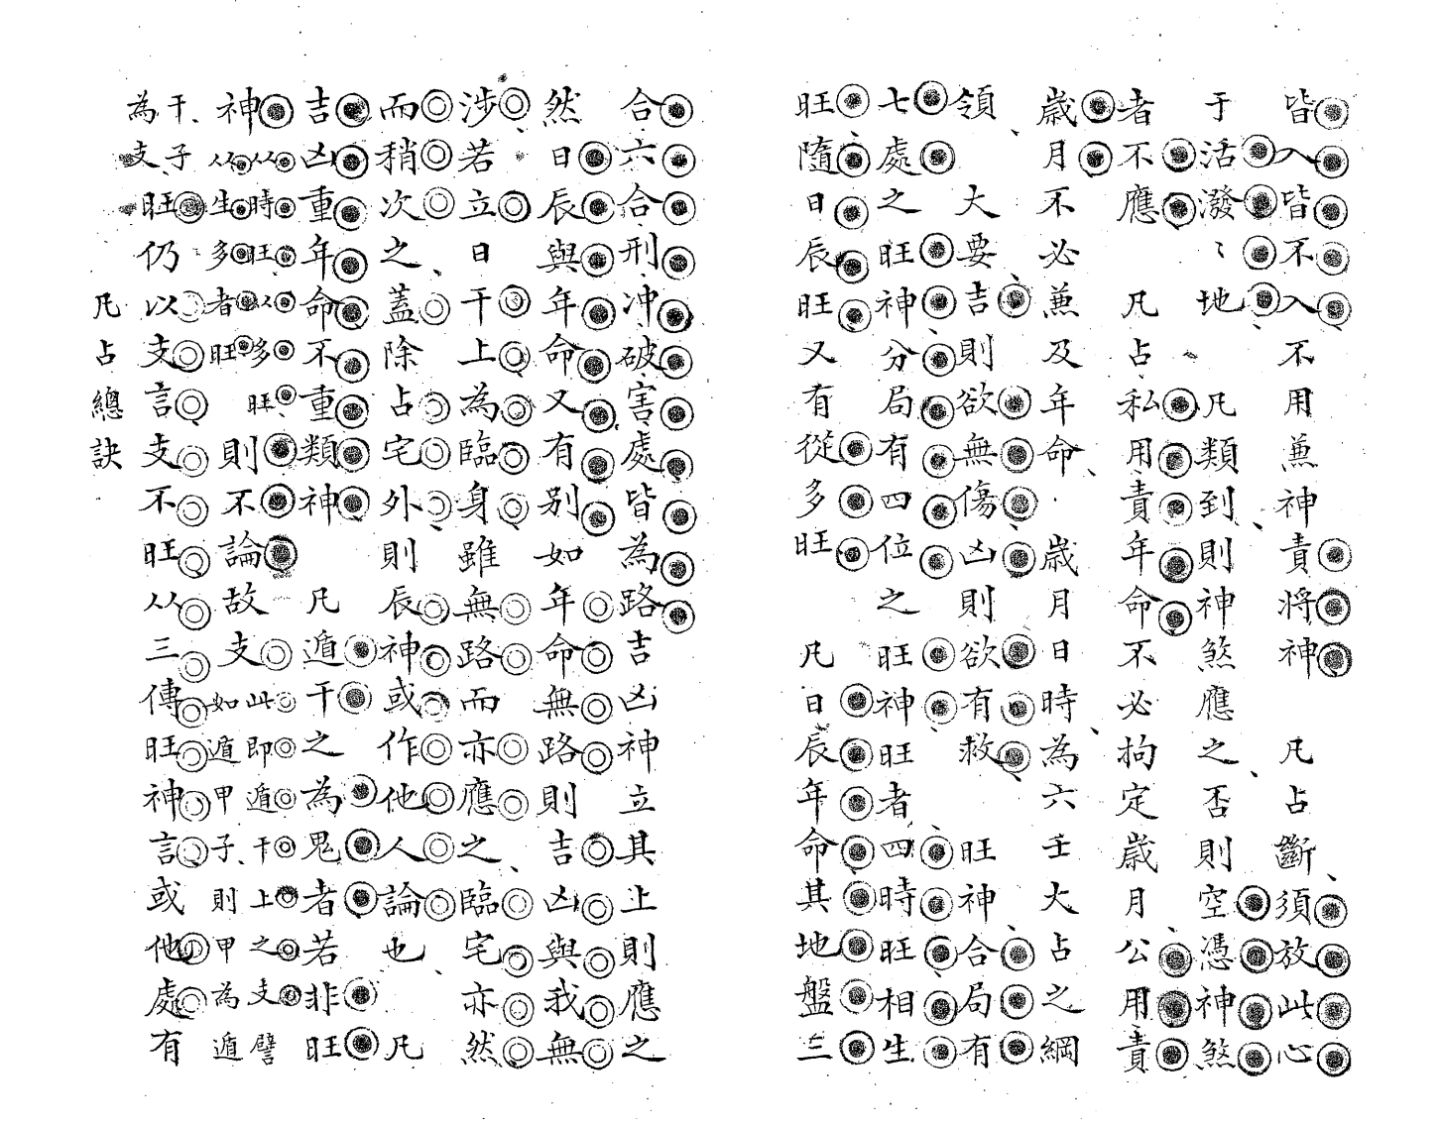 皆入皆不入不用兼神責將神　凡占斷須放此心
于活潑〻地　凡類到則神煞應之否則空憑神煞
者不應　凡占私用責年命不必拘定歲月公用責
歲月不必兼及年命　歲月日時為六壬大占之綱
領　大要吉則欲無傷凶則欲有救　旺神合局有
七處之旺神分局有四位之旺神旺者四時旺相生
旺隨日辰旺又有從多旺　凡日辰年命其地盤三
合六合刑冲破害處皆為路吉凶神立其上則應之
然日辰與年命又有別如年命無路則吉凶與我無
涉若立日干上為臨身雖無路而亦應之臨宅亦然
而稍次之蓋除占宅外則辰神或作他人論也　凡
吉凶重年命不重類神　凡遁干之為鬼者若非旺
神从時旺从多旺从生多者旺則不論故支此即遁干上之支譬如遁甲子則甲為遁
干子為支旺仍以支言支不旺从三傳旺神言或他處有
凡占總訣